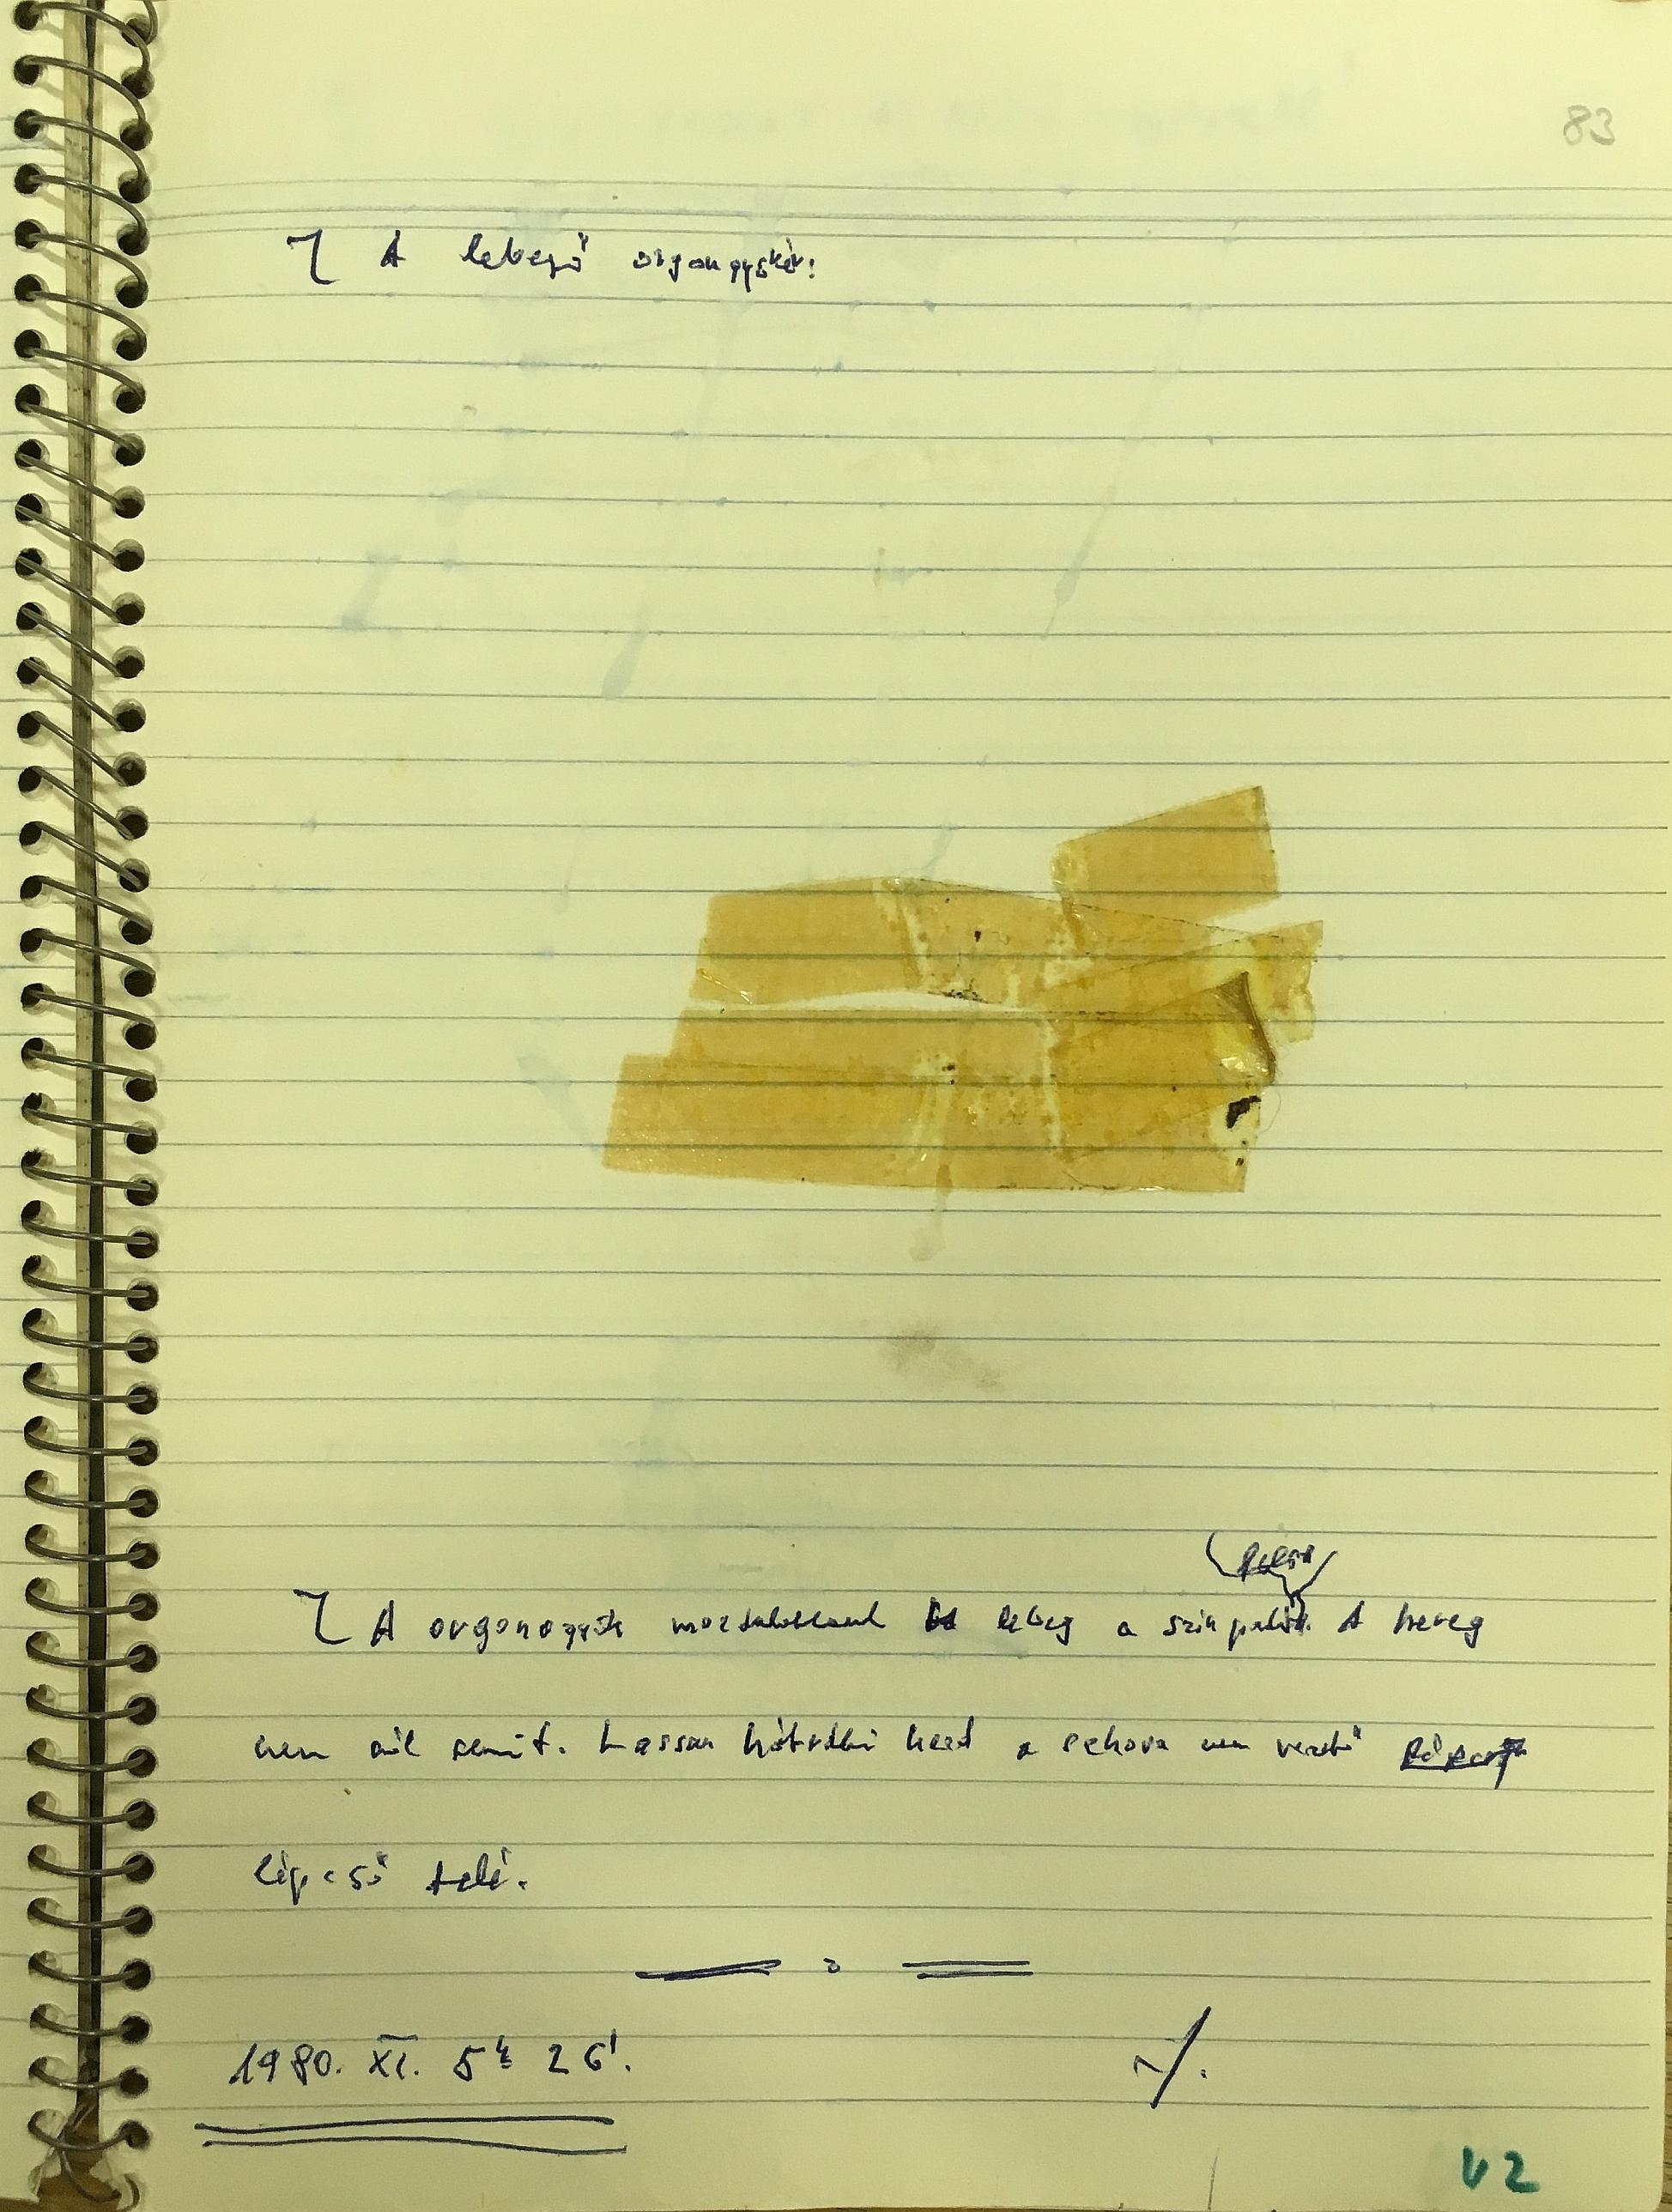 83
A lebegő orgongyökér:
A orgonagyök mozdulatlanul lebeg a színpalán. A herceg
nem szól semmit. Lassan hátrálni kezd a sehova nem vezető
lépcső felé.
1980. XI. 5h 26'.
42